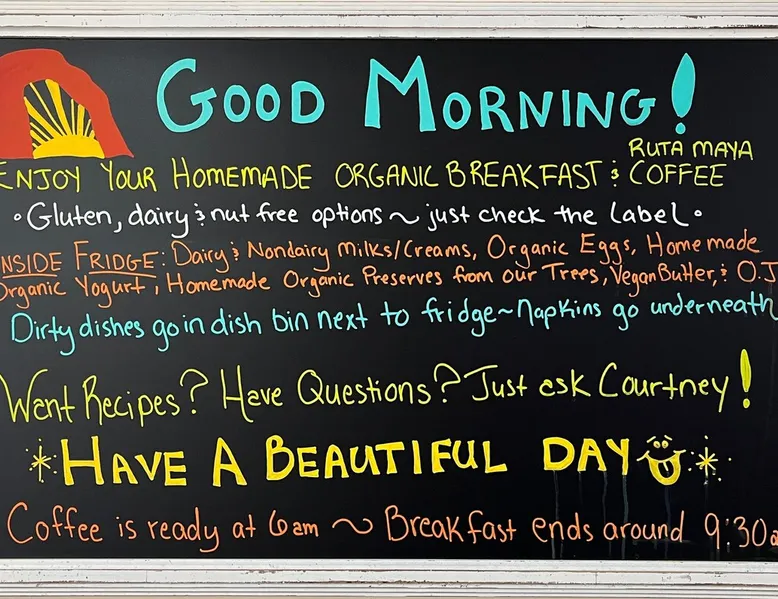 GOOD MORNING!
RUTA MAYA
ENJOY YOUR HOMEMADE ORGANIC BREAKFAST & COFFEE
• Gluten, dairy & nut free options ~ just check the label •
INSIDE FRIDGE: Dairy & Nondairy Milks/Creams, Organic Eggs, Homemade
Organic Yogurt, Homemade Organic Preserves from our Trees, Vegan Butter, & O.J
Dirty dishes go in dish bin next to fridge ~ Napkins go underneath
Want Recipes? Have Questions? Just ask Courtney!
*HAVE A BEAUTIFUL DAY*
Coffee is ready at 6am ~ Breakfast ends around 9:30a